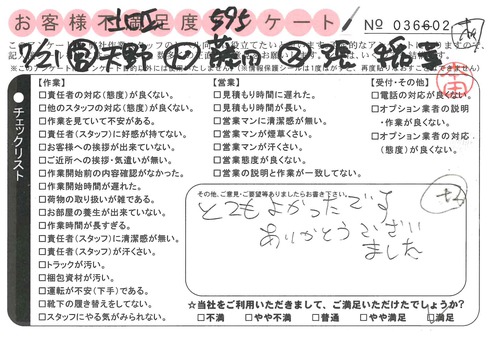 お客様不満足度アンケート
No 036602
チェックリスト
【作業】
□責任者の対応(態度)が良くない。
□他のスタッフの対応(態度)が良くない。
□作業を見ていて不安がある。
□責任者(スタッフ)に好感が持てない。
□お客様への挨拶が出来ていない。
□ご近所への挨拶・気遣いが無い。
□作業開始前の内容確認がなかった。
□作業開始時間が遅れた。
□荷物の取り扱いが雑である。
□お部屋の養生が出来ていない。
□作業時間が長すぎる。
□責任者(スタッフ)に清潔感が無い。
□責任者(スタッフ)が汗くさい。
□トラックが汚い。
□梱包資材が汚い。
□運転が不安(下手)である。
□靴下の履き替えをしてない。
□スタッフにやる気がみられない。
【営業】
□見積もり時間に遅れた。
□見積もり時間が長い。
□営業マンに清潔感が無い。
□営業マンが煙草くさい。
□営業マンが汗くさい。
□営業態度が良くない。
□営業の説明と作業が一致してない。
【受付・その他】
□電話の対応が良くない。
□オプション業者の説明
・作業が良くない。
□オプション業者の対応
(態度)が良くない。
その他、ご意見・ご要望等ありましたらお書き下さい。
とてもよかったです
ありがとうござい
ました
☆当社をご利用いただきまして、ご満足いただけたでしょうか?
□不満 □やや不満 □普通 □やや満足 □満足